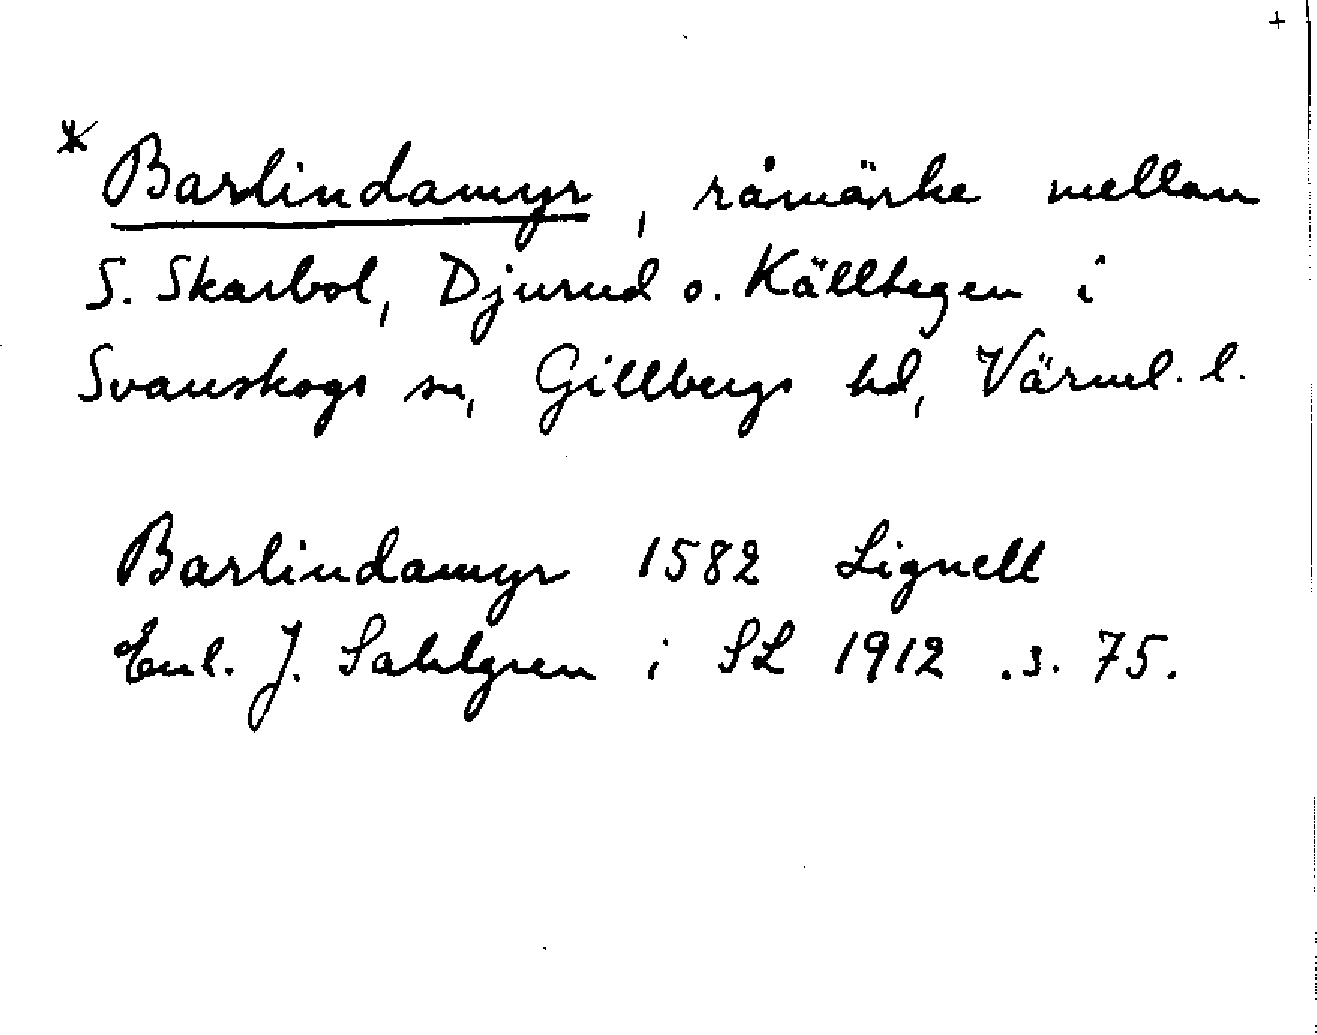 +
* Barlindamyr, råmärke mellan
S. Skarbol, Djurud o. Källtegen i
Svanskogs sn, Gillbergs hd, Värml. l.
Barlindamyr 1582 Lignell
Enl. J. Sahlgren i SL 1912 .s. 75.